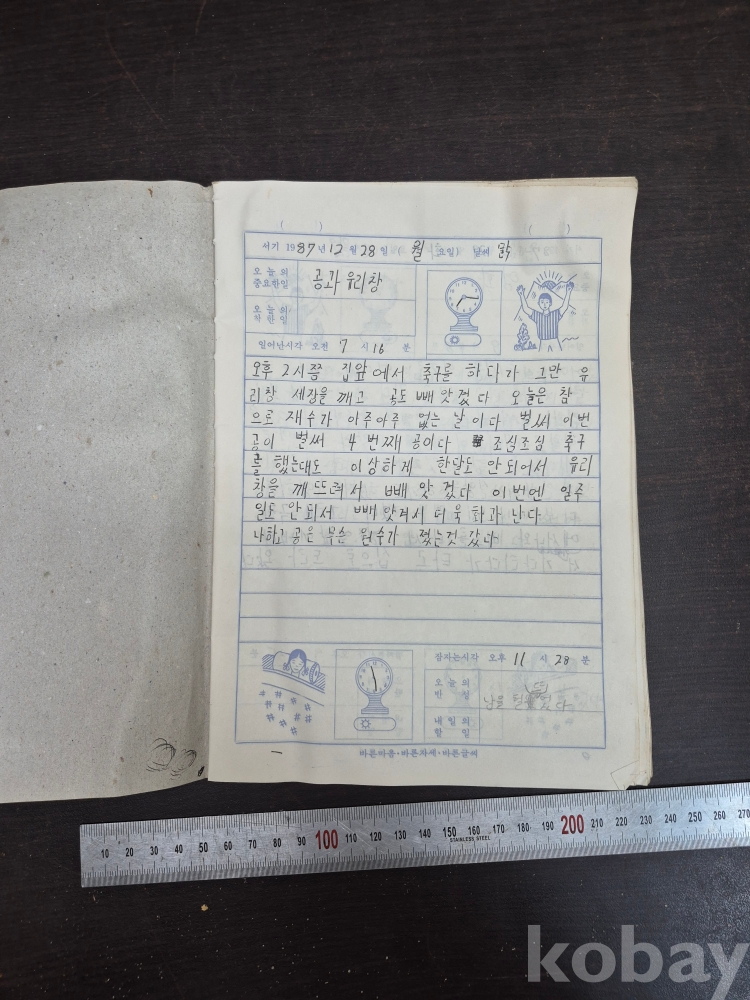 (        )        (        )
서기 1987년 12월 28일 (월요일) 날씨 맑
오늘의 중요한일 공과 유리창
오늘의 착한일
일어난시각 오전 7시 16분
오후 2시쯤 집앞에서 축구를 하다가 그만 유
리창 세장을 깨고 공도 빼앗겼다 오늘은 참
으로 재수가 아주아주 없는 날이다 벌써 이번
공이 벌써 4번째 공이다 조심조심 축구
를 했는대도 이상하게 한달도 안되어서 유리
창을 깨뜨려서 빼앗겼다 이번엔 일주
일도 안되서 빼앗겨서 더욱 화과 난다
나하고 공은 무슨 원수가 졌는것 같다
잠자는시각 오후 11시 28분
오늘의 반성 남을
내일의 할일
바른마음·바른자세·바른글씨
10 20 30 40 50 60 70 80 90 100 110 120 130 140 150 160 170 180 190 200 210 220 230 240 250 260 270
STAINLESS STEEL
kobay